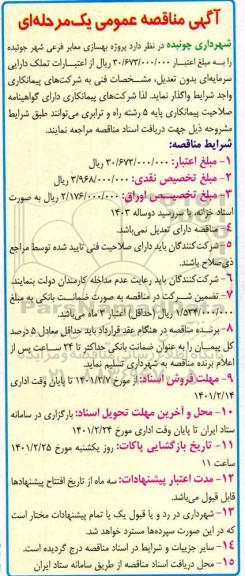 آگهی مناقصه عمومی یک‌مرحله‌ای
شهرداری چوئبده در نظر دارد پروژه بهسازی معابر فرعی شهر چوئبده
را به مبلغ اعتبار ۳۰/۶۷۳/۰۰۰/۰۰۰ ریال از اعتبارات تملک دارایی
سرمایه‌ای بدون تعدیل، مشخصات فنی به شرکت‌های پیمانکاری
واجد شرایط واگذار نماید. لذا شرکت‌های پیمانکاری دارای گواهینامه
صلاحیت پیمانکاری پایه ۵ رشته راه و ترابری می‌توانند طبق شرایط
مشروحه ذیل جهت دریافت اسناد مناقصه مراجعه نمایند.
شرایط مناقصه:
۱- مبلغ اعتبار: ۳۰/۶۷۳/۰۰۰/۰۰۰ ریال
۲- مبلغ تخصیص نقدی: ۳/۹۶۸/۰۰۰/۰۰۰ ریال
۳- مبلغ تخصیص اوراق: ۲/۱۷۶/۰۰۰/۰۰۰ ریال به صورت
اسناد خزانه، با سررسید دوساله ۱۴۰۳
۴- مناقصه دارای تعدیل نمی‌باشد.
۵- شرکت‌کنندگان باید دارای صلاحیت فنی تایید شده توسط مراجع
ذی‌صلاح باشند.
۶- شرکت‌کنندگان باید رعایت عدم مداخله کارمندان دولت بنمایند.
۷- تضمین شرکت در مناقصه به صورت ضمانت بانکی به مبلغ
۱/۵۳۴/۰۰۰/۰۰۰ ریال (حداقل) اعتبار ۳ ماه می‌باشد.
۸- برنده مناقصه در هنگام عقد قرارداد باید حداقل معادل ۵ درصد
کل پیمان را به عنوان ضمانت بانکی حداکثر تا ۲۴ ساعت پس از
اعلام برنده مناقصه به شهرداری تسلیم نماید.
۹- مهلت فروش اسناد: از مورخ ۱۴۰۱/۲/۷ تا پایان وقت اداری
۱۴۰۱/۲/۱۴
۱۰- محل و آخرین مهلت تحویل اسناد: بارگزاری در سامانه
ستاد ایران تا پایان وقت اداری مورخ ۱۴۰۱/۲/۲۴
۱۱- تاریخ بازگشایی پاکات: روز یکشنبه مورخ ۱۴۰۱/۲/۲۵
ساعت ۱۱
۱۲- مدت اعتبار پیشنهادات: سه ماه از تاریخ افتتاح پیشنهادها
قابل قبول می‌باشد.
۱۳- شهرداری در رد و یا قبول یک یا تمام پیشنهادات مختار است
که در این صورت سپرده‌ها مسترد خواهد شد.
۱۴- سایر جزییات و شرایط در اسناد مناقصه درج گردیده است.
۱۵- محل دریافت اسناد مناقصه از طریق سامانه ستاد ایران